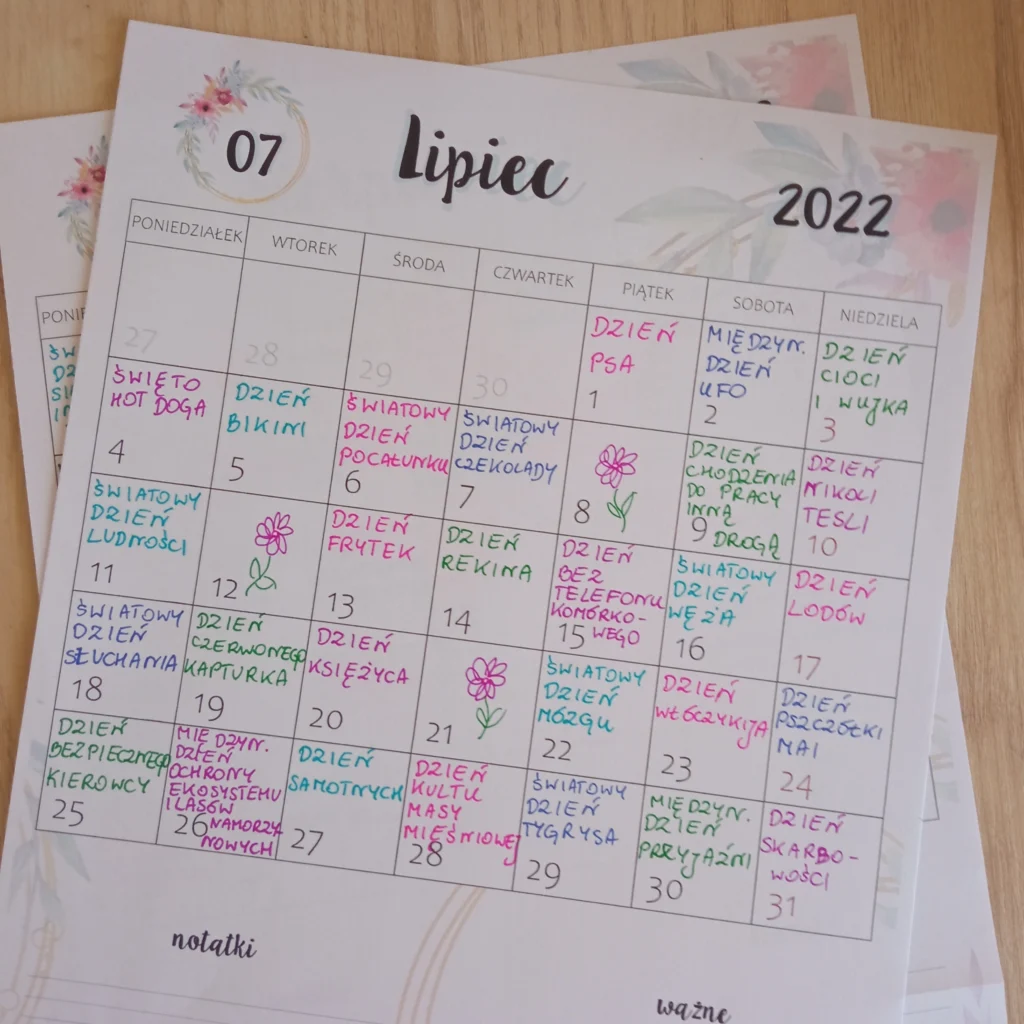 07
Lipiec
2022
PONIEDZIAŁEK WTOREK ŚRODA CZWARTEK PIĄTEK SOBOTA NIEDZIELA
27
28
29
30
DZIEŃ
PSA
1
MIĘDZYN.
DZIEŃ
UFO
2
DZIEŃ
CIOCI
I WUJKA
3
ŚWIĘTO
HOT DOGA
4
DZIEŃ
BIKINI
5
ŚWIATOWY
DZIEŃ
POCAŁUNKU
6
ŚWIATOWY
DZIEŃ
CZEKOLADY
7
8
DZIEŃ
CHODZENIA
DO PRACY
INNĄ
9 DROGĄ
DZIEŃ
NIKOLI
TESLI
10
ŚWIATOWY
DZIEŃ
LUDNOŚCI
11
12
DZIEŃ
FRYTEK
13
DZIEŃ
REKINA
14
DZIEŃ
BEZ
TELEFONU
KOMÓRKO-
15 WEGO
ŚWIATOWY
DZIEŃ
WĘŻA
16
DZIEŃ
LODÓW
17
ŚWIATOWY
DZIEŃ
SŁUCHANIA
18
DZIEŃ
CZERWONEGO
KAPTURKA
19
DZIEŃ
KSIĘŻYCA
20
21
ŚWIATOWY
DZIEŃ
MÓZGU
22
DZIEŃ
WŁÓCZYKIJA
23
DZIEŃ
PSZCZÓŁKI
MAI
24
DZIEŃ
BEZPIECZNEGO
KIEROWCY
25
MIĘDZYN.
DZIEŃ
OCHRONY
EKOSYSTEMU
I LASÓW
26 NAMORZY
NOWYCH
DZIEŃ
SAMOTNYCH
27
DZIEŃ
KULTU
MASY
MIĘŚNIOWEJ
28
ŚWIATOWY
DZIEŃ
TYGRYSA
29
MIĘDZYN.
DZIEŃ
PRZYJAŹNI
30
DZIEŃ
SKARBO-
WOŚCI
31
notatki
ważne